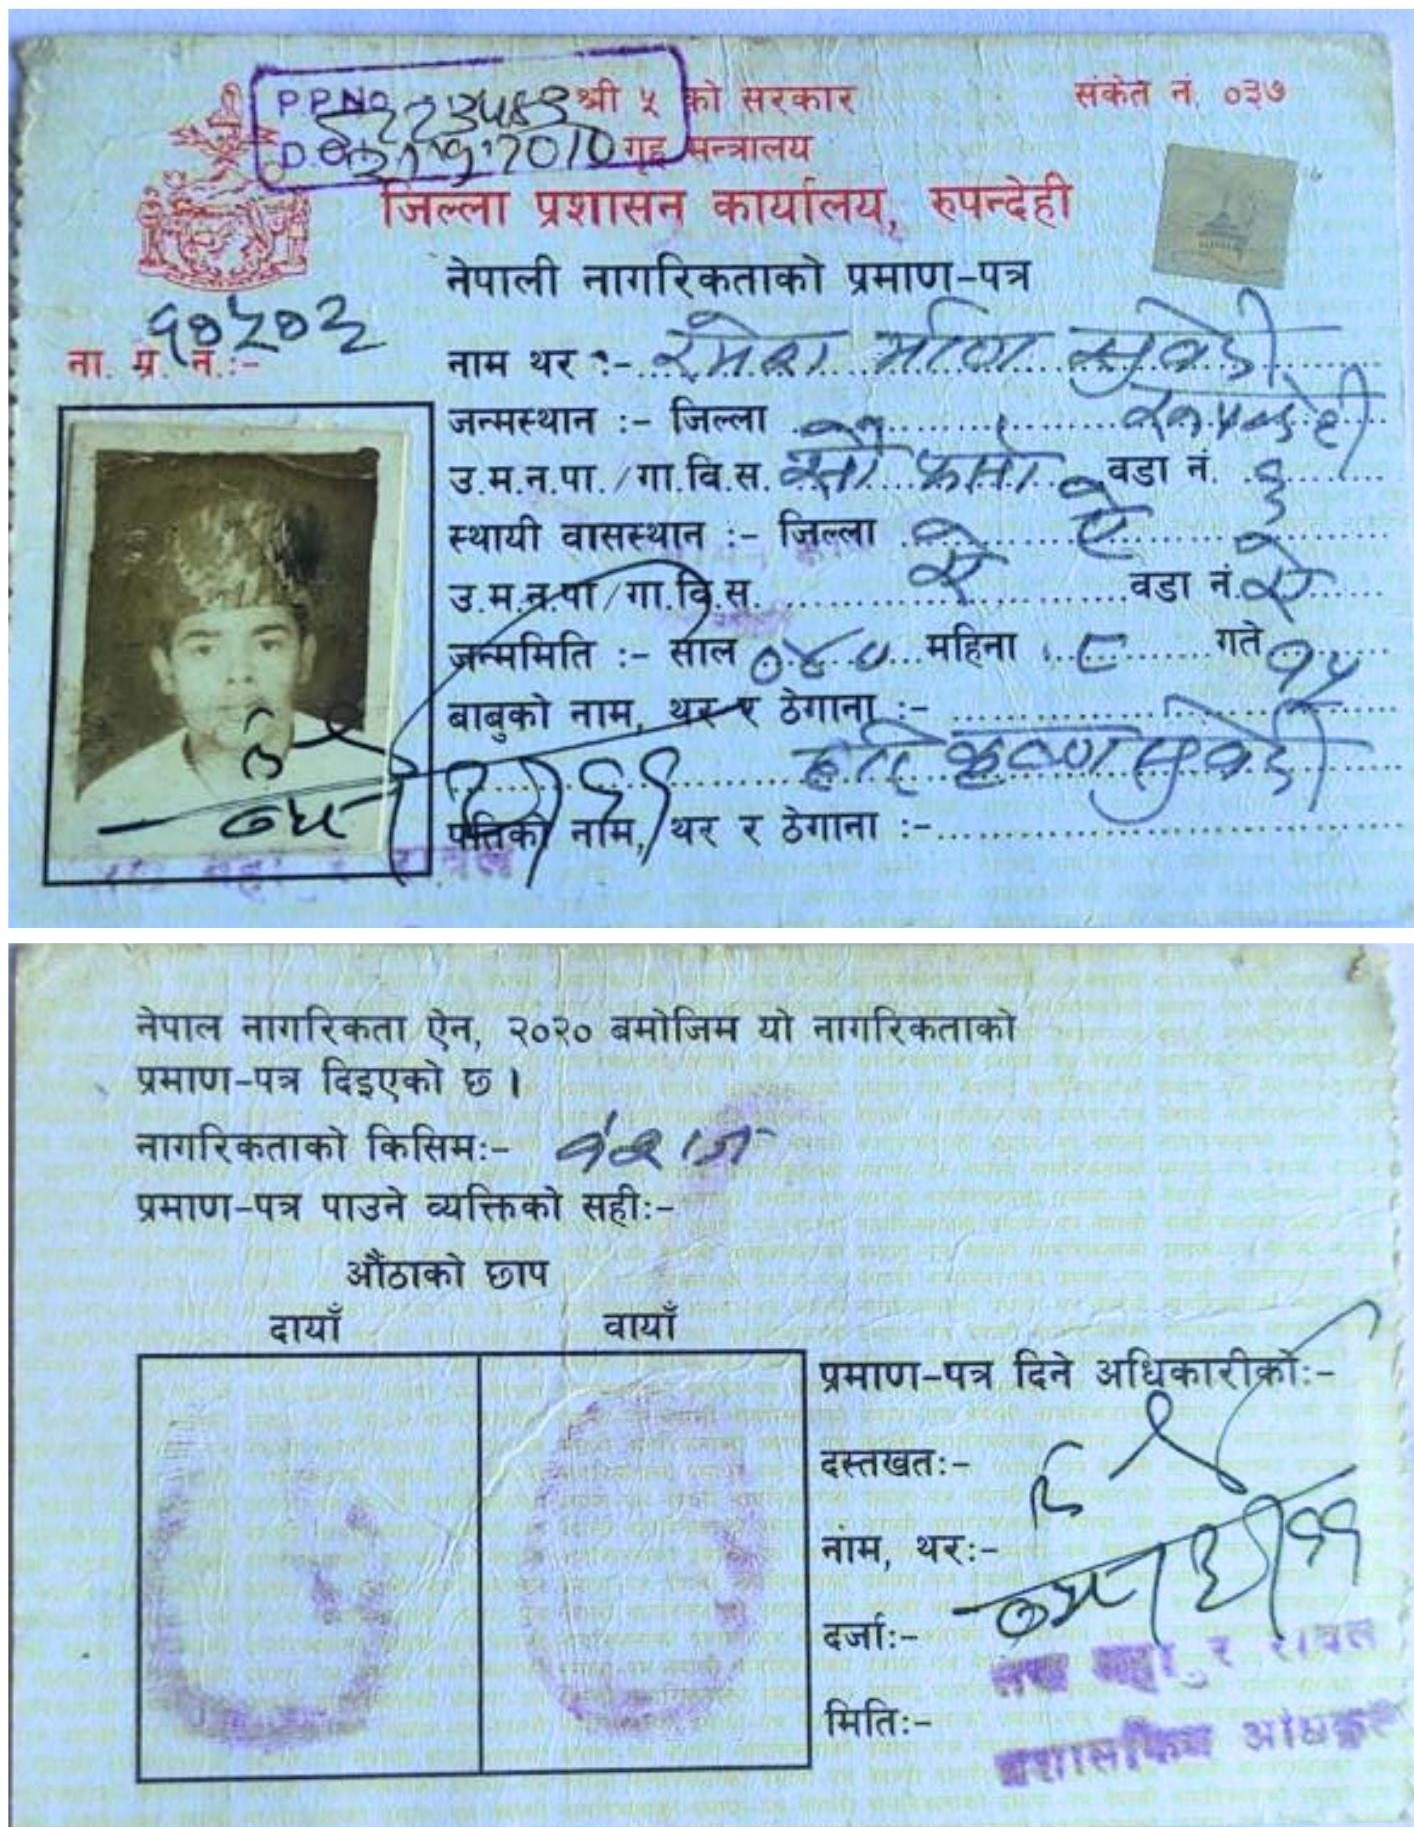 P.P.No 5223483 श्री ५ को सरकार संकेत नं. ०३७
गृह मन्त्रालय
जिल्ला प्रशासन कार्यालय, रुपन्देही
नेपाली नागरिकताको प्रमाण-पत्र
ना. प्र. नं.:- १०५०३
नाम थर :- रमेश मणि सुवेदी
जन्मस्थान :- जिल्ला रुपन्देही
उ.म.न.पा./गा.वि.स. वडा नं. ६
स्थायी वासस्थान :- जिल्ला ऐ
उ.म.न.पा/गा.वि.स. ऐ वडा नं. ऐ
जन्ममिति :- साल ०४० महिना ८ गते १५
बाबुको नाम, थर र ठेगाना :-
हरि कृष्ण सुवेदी
पतिको नाम, थर र ठेगाना :-
नेपाल नागरिकता ऐन, २०२० बमोजिम यो नागरिकताको
प्रमाण-पत्र दिइएको छ ।
नागरिकताको किसिम:- वंशज
प्रमाण-पत्र पाउने व्यक्तिको सही:-
औंठाको छाप
दायाँ वायाँ
प्रमाण-पत्र दिने अधिकारीको:-
दस्तखत:-
नाम, थर:-
दर्जा:-
मिति:-